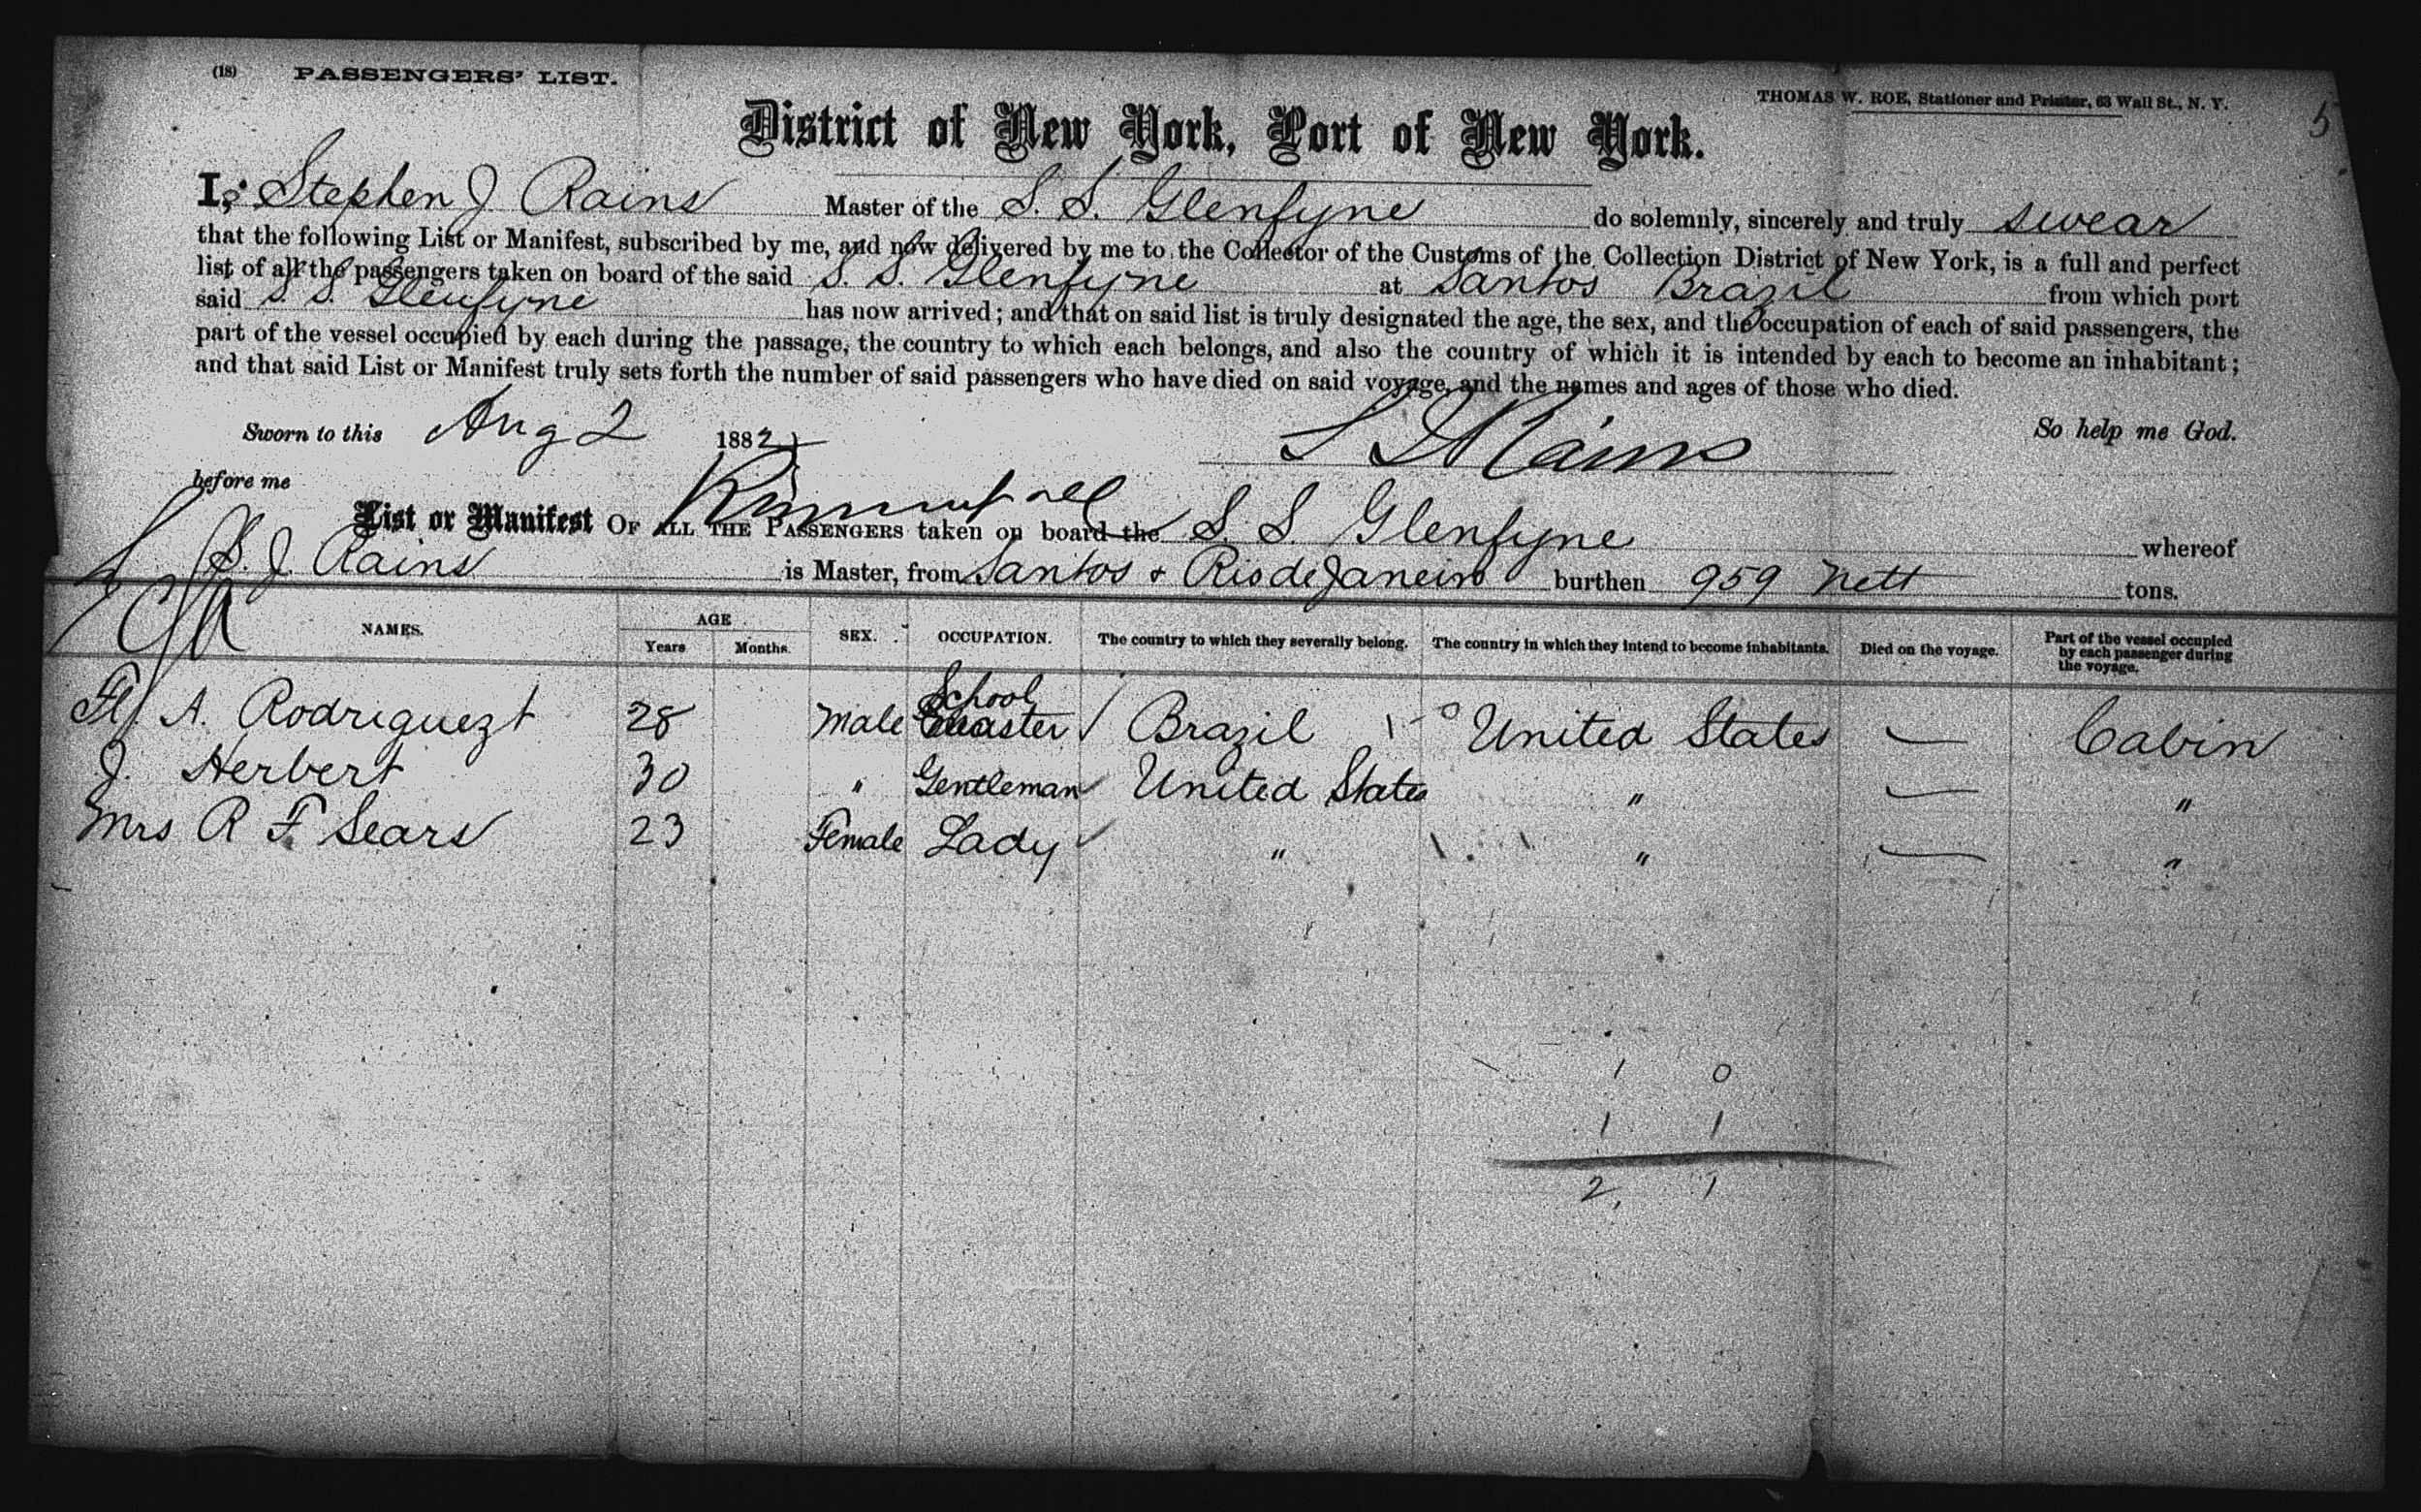 (18) PASSENGERS' LIST.
THOMAS W. ROE, Stationer and Printer, 63 Wall St., N. Y.
5
District of New York, Port of New York.
I, Stephen J Rains Master of the S. S. Glenfyne do solemnly, sincerely and truly swear
that the following List or Manifest, subscribed by me, and now delivered by me to the Collector of the Customs of the Collection District of New York, is a full and perfect
list of all the passengers taken on board of the said S. S. Glenfyne at Santos Brazil from which port
said S. S. Glenfyne has now arrived; and that on said list is truly designated the age, the sex, and the occupation of each of said passengers, the
part of the vessel occupied by each during the passage, the country to which each belongs, and also the country of which it is intended by each to become an inhabitant;
and that said List or Manifest truly sets forth the number of said passengers who have died on said voyage, and the names and ages of those who died.
So help me God.
Sworn to this Aug 2 1882 Rains
before me
List or Manifest OF ALL THE PASSENGERS taken on board the S. S. Glenfyne whereof
S. J. Rains is Master, from Santos + Rio de Janeiro burthen 959 Nett tons.
NAMES. AGE Years Months. SEX. OCCUPATION. The country to which they severally belong. The country in which they intend to become inhabitants. Died on the voyage. Part of the vessel occupied by each passenger during the voyage.
A. Rodriguezt 28 Male School Master Brazil United States — Cabin
J. Herbert 30 " Gentleman United States " — "
Mrs R F Sears 23 Female Lady " " — "
1 0
1 1
2, 1